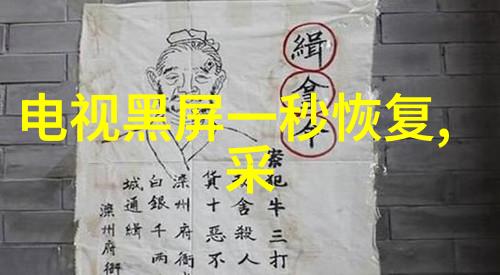 电视黑屏一秒恢复,
采
緝拿
案犯牛三打
舍殺人
貨十惡不
滦州府衙
白銀千兩
城通緝
滦州府衙